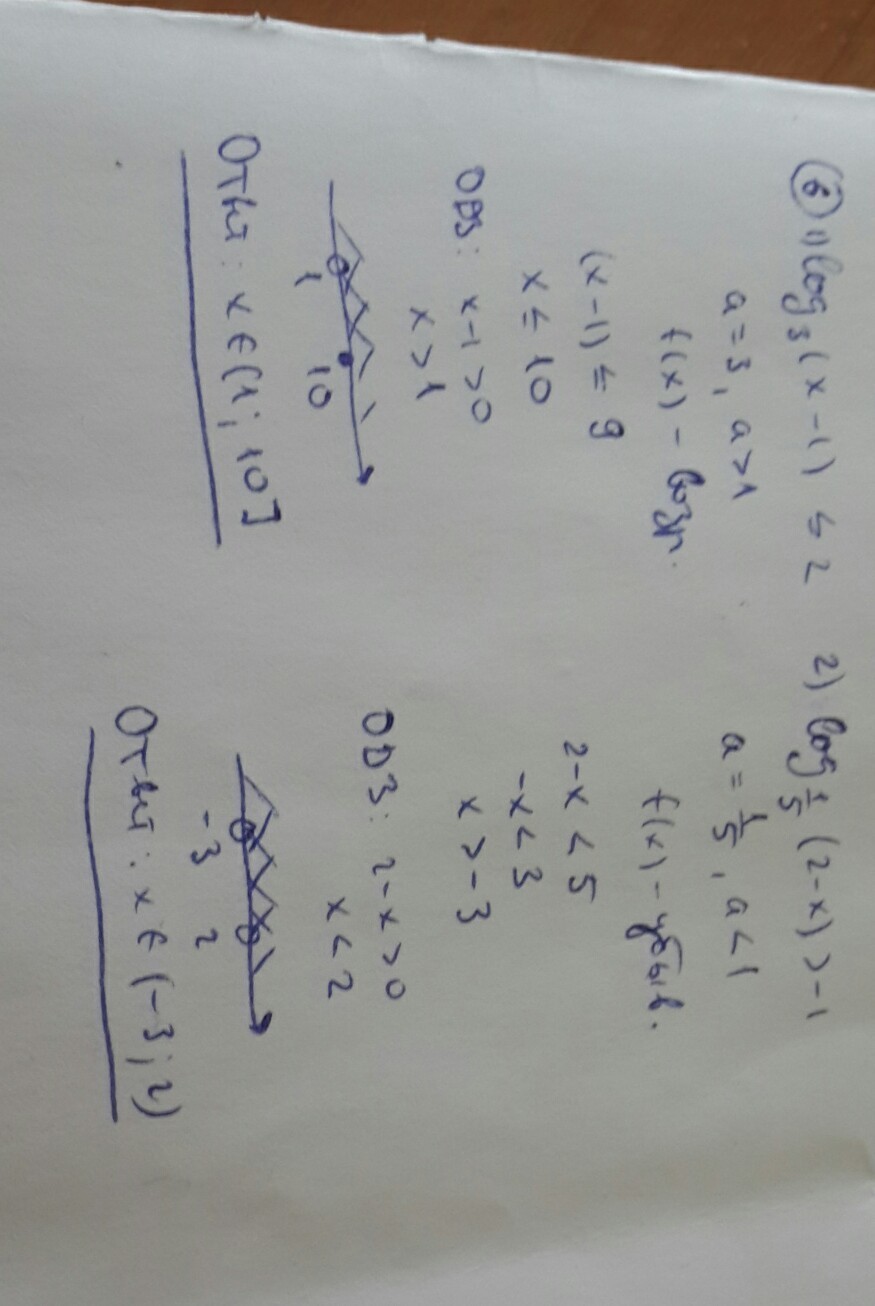 ⑥ 1) log₃(x-1) ≤ 2
a = 3, a>1
f(x) - возр.
(x-1) ≤ 9
x ≤ 10
ОДЗ: x-1 >0
x >1
1 10
Ответ: x∈(1; 10]
2) log_{1/5} (2-x) > -1
a = 1/5, a<1
f(x) - убыв.
2-x < 5
-x < 3
x > -3
ОДЗ: 2-x>0
x<2
-3 2
Ответ: x∈(-3; 2)